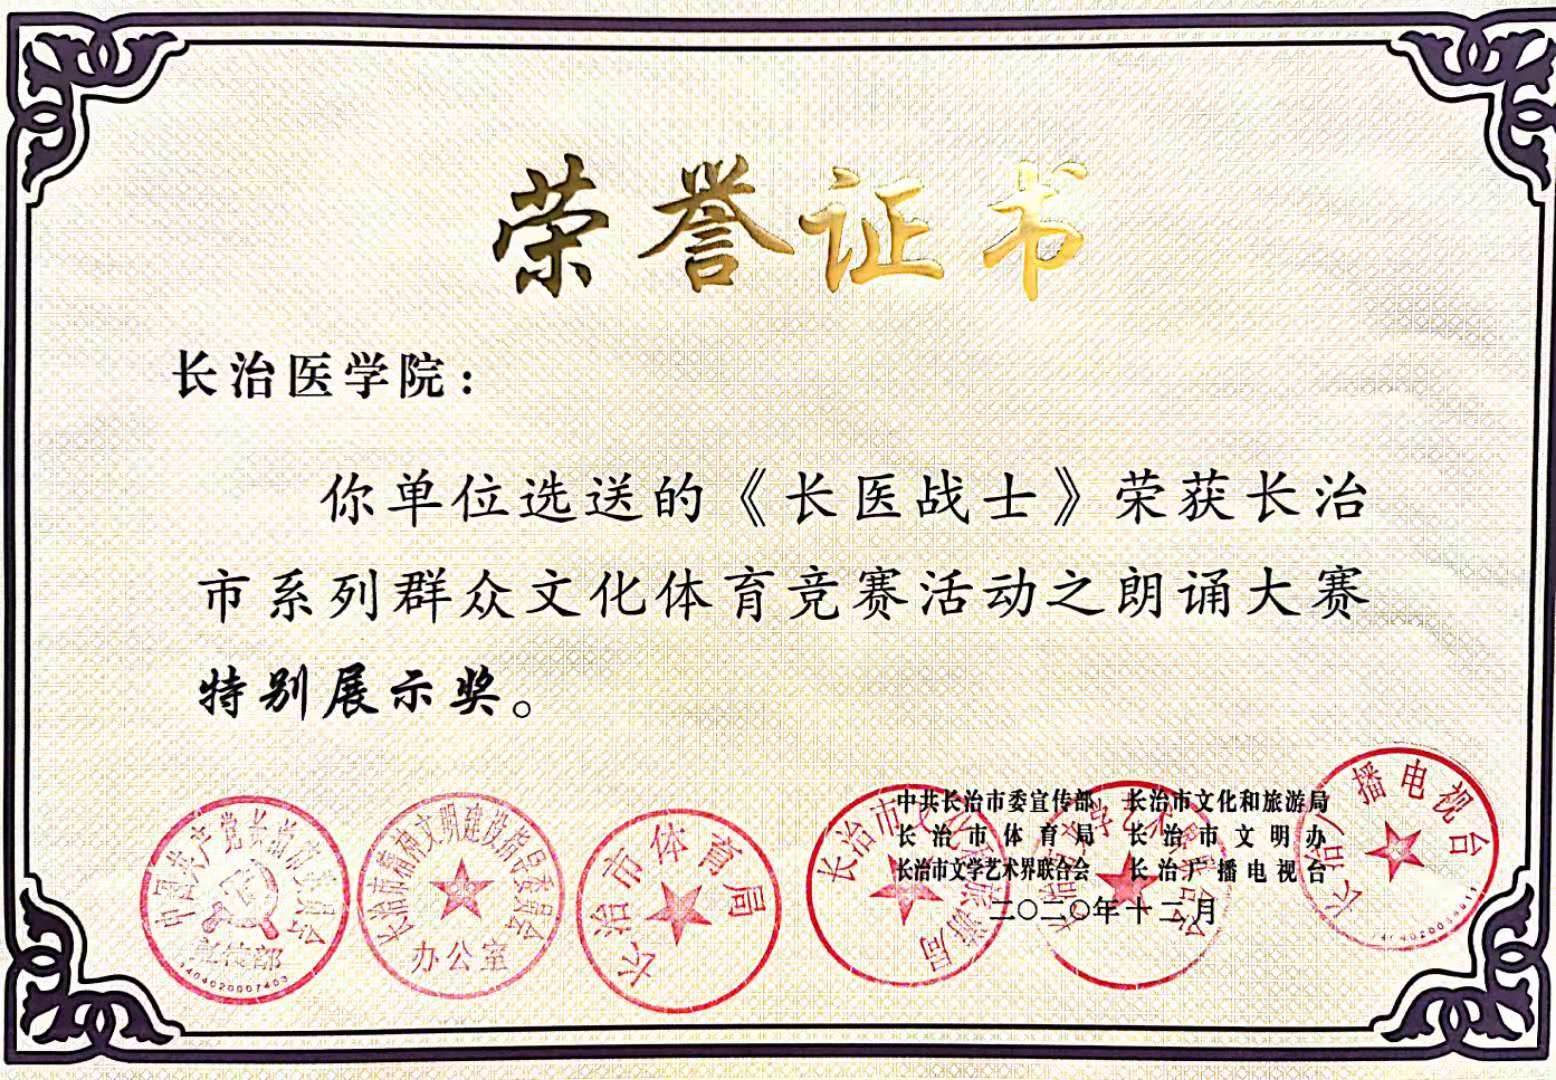 荣誉证书
长治医学院：
你单位选送的《长医战士》荣获长治
市系列群众文化体育竞赛活动之朗诵大赛
特别展示奖。
中共长治市委宣传部 长治市文化和旅游局
长治市体育局 长治市文明办
长治市文学艺术界联合会 长治广播电视台
二〇二〇年十二月
中国共产党长治市委员会
宣传部
1404020007403
长治市精神文明建设指导委员会
办公室
长治市体育局
长治市文化和旅游局
长治广播电视台